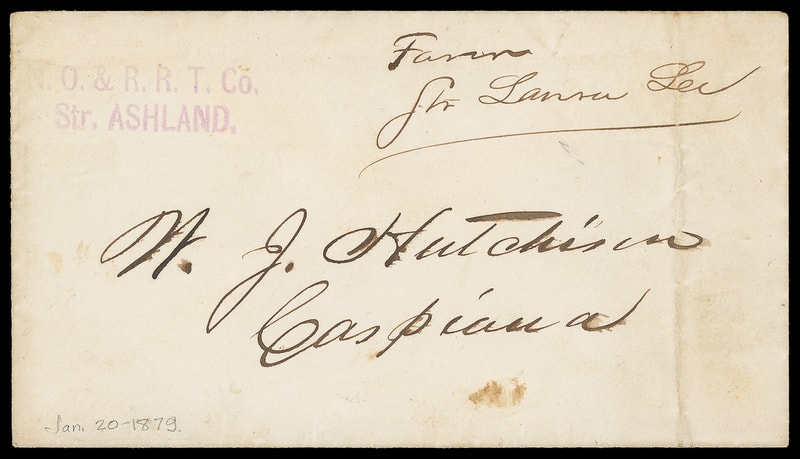 N. O. & R. R. T. Co.
Str. ASHLAND.
Favor
Str Laura Lee
W. J. Hutchison
Caspiana
Jan. 20-1879.